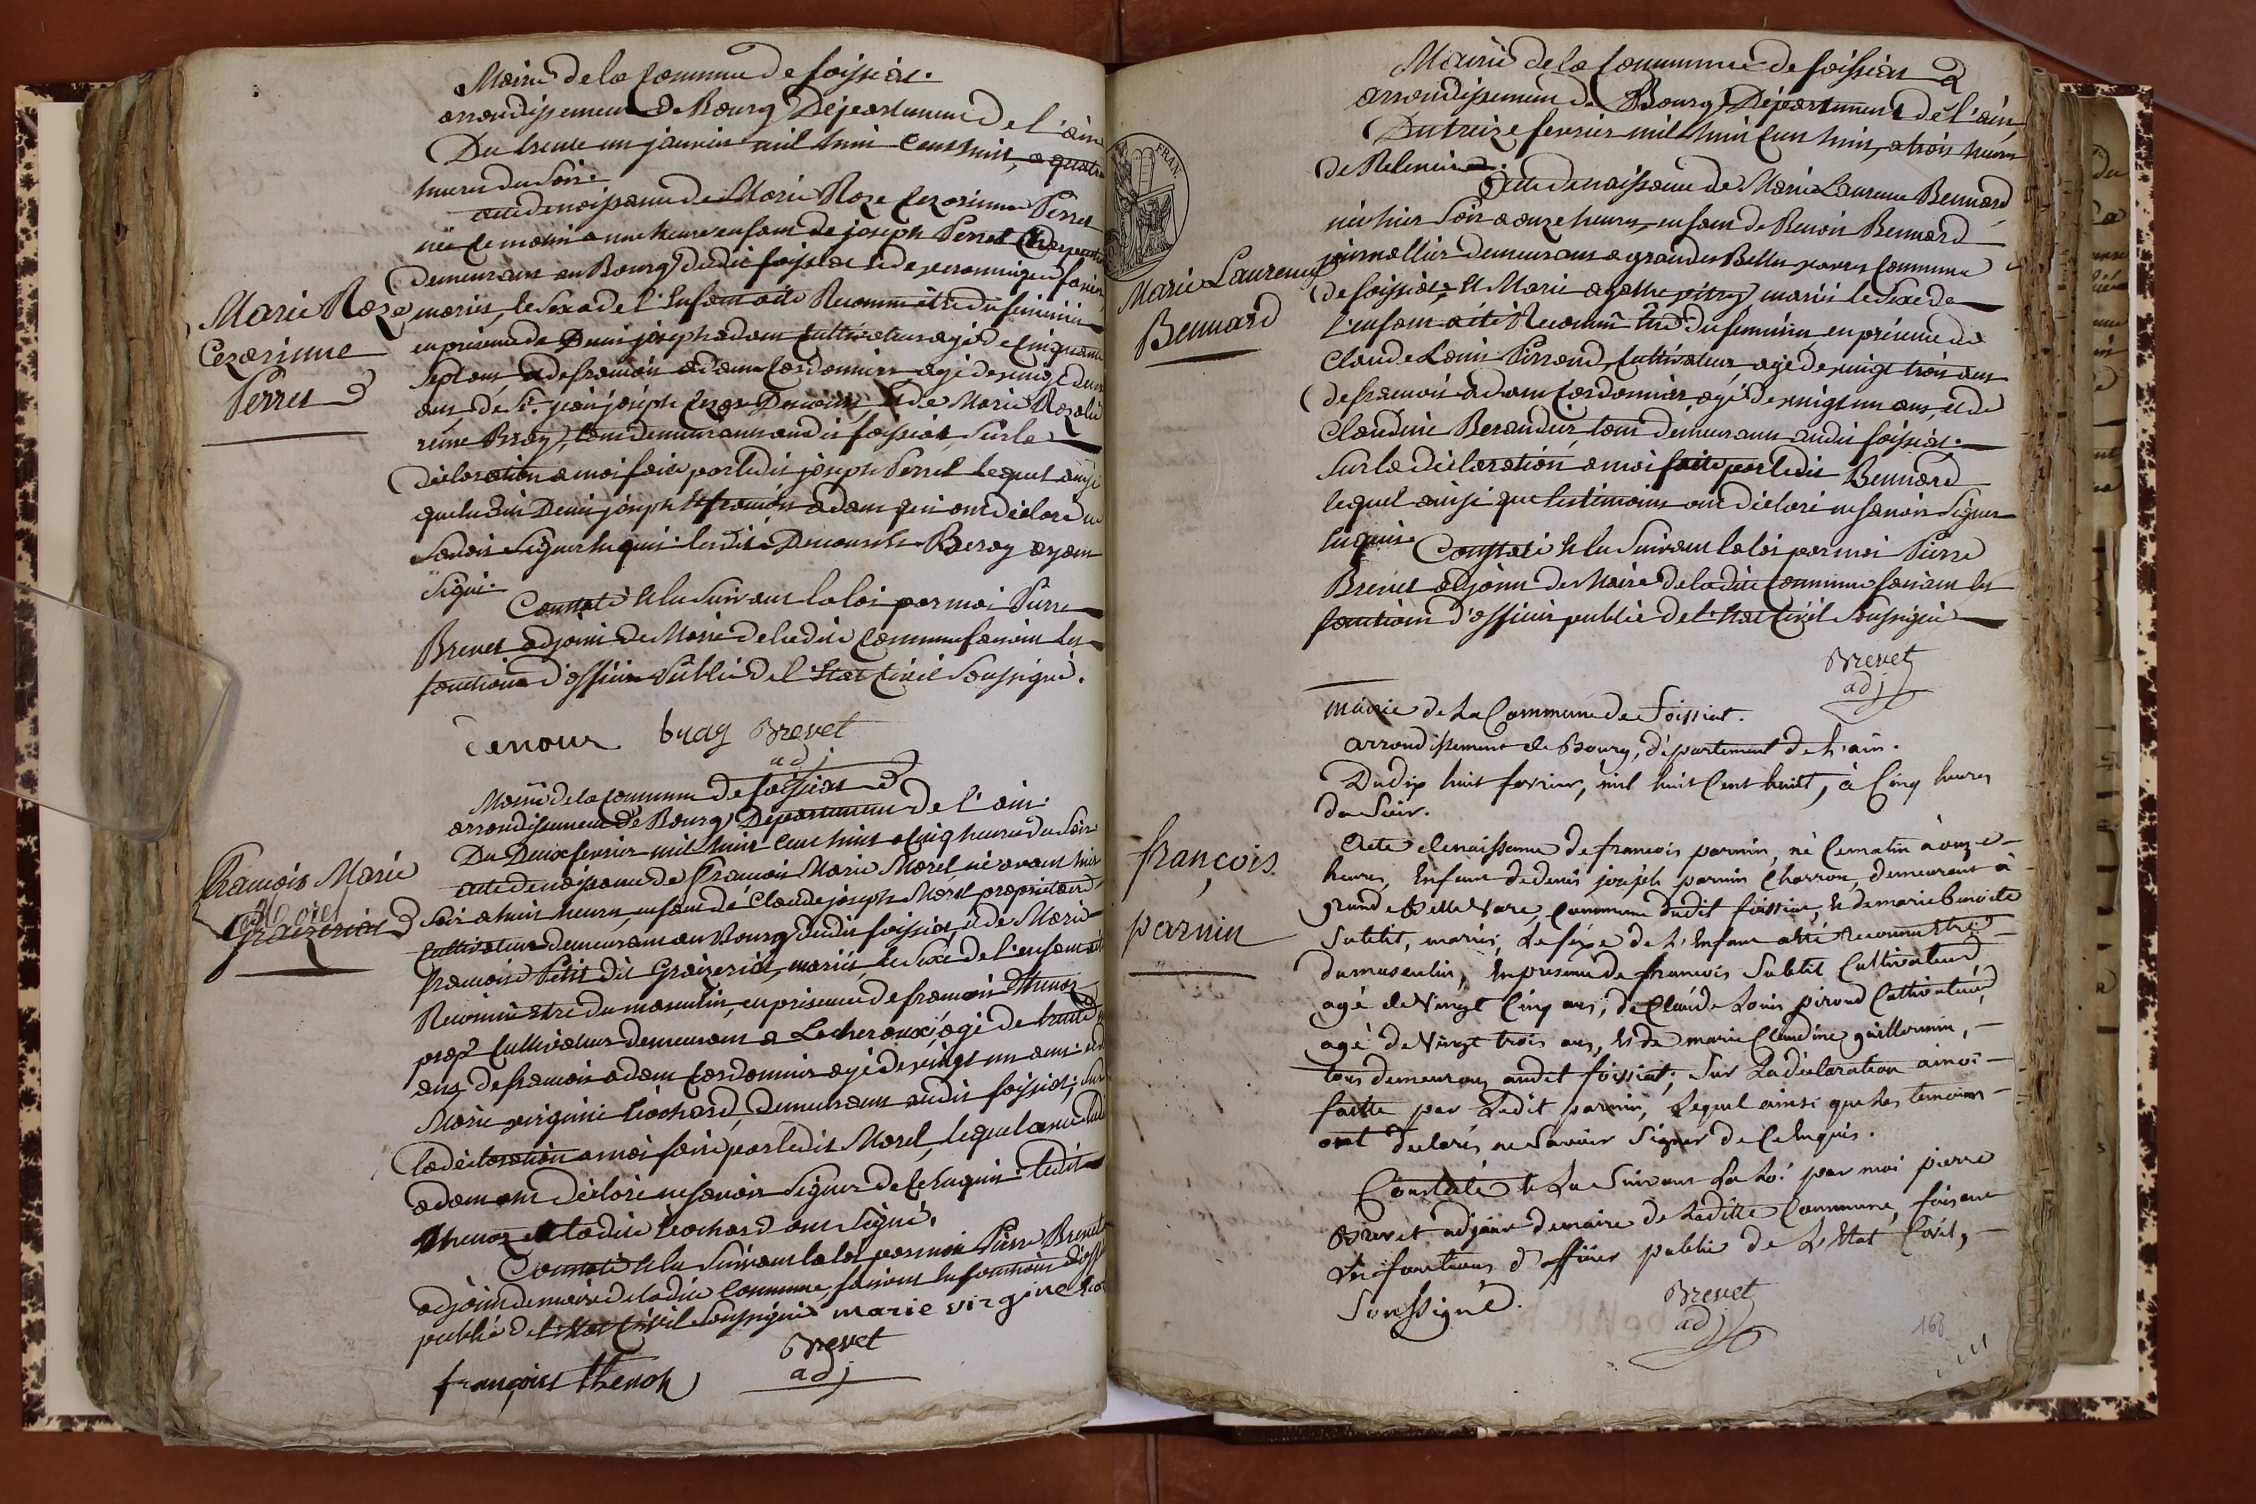 Mairie de la Commune de foissiat.
arrondissement de Bourg Departement de l'ain
Du trente un janvier mil huit cent huit, a quatre
heures du soir.
acte de naissance de Marie Roze Cezarinne Perret
née ce matin a une heure enfant de joseph Perret
demeurant au Bourg dudit foissiat et de
mariés, le sexe de l'Enfant a été Reconnu être du feminin
en presence de Denis joseph adam Cultivateur agé de cinquante
sept ans, et de françois adam Cordonnier agé de vingt un
ans, de Sr. jean joseph Cezar Denour et de Marie Rozalie
reine Bray, tous demeurans audit foissiat, sur la
déclaration a moi faite par ledit joseph Perret lequel ainsi
que ledit Denis joseph et françois adam qui ont déclaré ne
savoir signer enquis. lesdits Denour et Bray ayant
signé.
Constaté et lu suivant la loi par moi Pierre
Brevet adjoint de Maire de ladite Commune faisant les
fonctions d'officier Public de l'Etat Civil soussigné.
Denour bray Brevet
adj
Marie Roze
Cezarinne
Perret
Mairie de la commune de foissiat
arrondissement de Bourg Departement de l'ain.
Du Deux fevrier mil huit cent huit a cinq heures du soir
acte de naissance de François Marie Morel, né avant hier
soir a huit heures, enfant de Claude joseph Morel proprietaire
Cultivateur demeurant au Bourg dudit foissiat et de Marie
françoise Petit dit Graizeriat, mariés, le sexe de l'enfant a été
Reconnu etre du masculin, en presence de françois Thenoz
propre Cultivateur demeurant a Lescheroux, agé de trente
ans, de françois adam Cordonnier agé de vingt un ans et de
Marie virginie Cochard, demeurans audit foissiat; sur
la déclaration a moi faite par ledit Morel, lequel avec ledit
adam ont déclaré ne savoir signer de ce Enquis. ledit
Thenoz et ladite Cochard ont signé.
Constaté et lu suivant la loi par moi Pierre Brevet
adjoint de maire de ladite Commune, faisant les fonctions d'officier
public de l'Etat Civil soussigné marie virginie
françois thenoz Brevet
adj
François Marie
Morel
Graizeriat
Mairie de la Commune de foissiat
arrondissement de Bourg Departement de l'ain
Du treize fevrier mil huit cent huit, a trois heures
de Relevée.
Acte de naissance de Marie Laurence Bernard
née hier soir a onze heures, enfant de Benoit Bernard
journallier demeurant a grandes Belles vavres Commune
de foissiat, et Marie agathe pitrey mariés le sexe de
l'enfant a été Reconnu être du feminin, en présence de
Claude Louis Pirroud, Cultivateur, agé de vingt trois ans
de françois adam Cordonnier, agé de vingt un ans, et de
Claudine Beraudier, tous demeurans audit foissiat.
sur la déclaration a moi faite par ledit Bernard
lequel ainsi que les témoins ont déclaré ne savoir signer
Enquis. Constaté et lu suivant la loi par moi Pierre
Brevet adjoint de Maire de ladite Commune faisant les
fonctions d'officier public de l'Etat Civil Soussigné
Brevet
adj
FRAN
Marie Laurence
Bernard
Mairie de La Commune de foissiat.
arrondissement de Bourg, département de L'ain.
Du dix huit fevrier, mil huit Cent huit, à Cinq heures
du Soir.
Acte de naissance de françois parnin, né Ce matin à onze
heures, Enfant de denis joseph parnin Charron, demeurant à
grande Belle Vavre, Commune dudit foissiat, et de marie benoite
Subtit, mariés, Le sexe de L'Enfant a été reconnu etre
du masculin, En presence de francois Subtit Cultivateur
agé de Vingt Cinq ans, de Claude Louis piroud Cultivateur,
agé de Vingt trois ans, et de marie Claudine guillermin,
tous demeurans audit foissiat; Sur La déclaration a moi
faitte par Ledit parnin, Lequel ainsi que Les temoins
ont declarés ne Savoir Signer de Ce Enquis.
Constaté et Lu Suivant La Loi par moi pierre
Brevet adjoint de maire de Ladite Commune, faisant
Les fonctions d'officier public de L'Etat Civil,
Soussigné.
Brevet
adj
françois
parnin
168